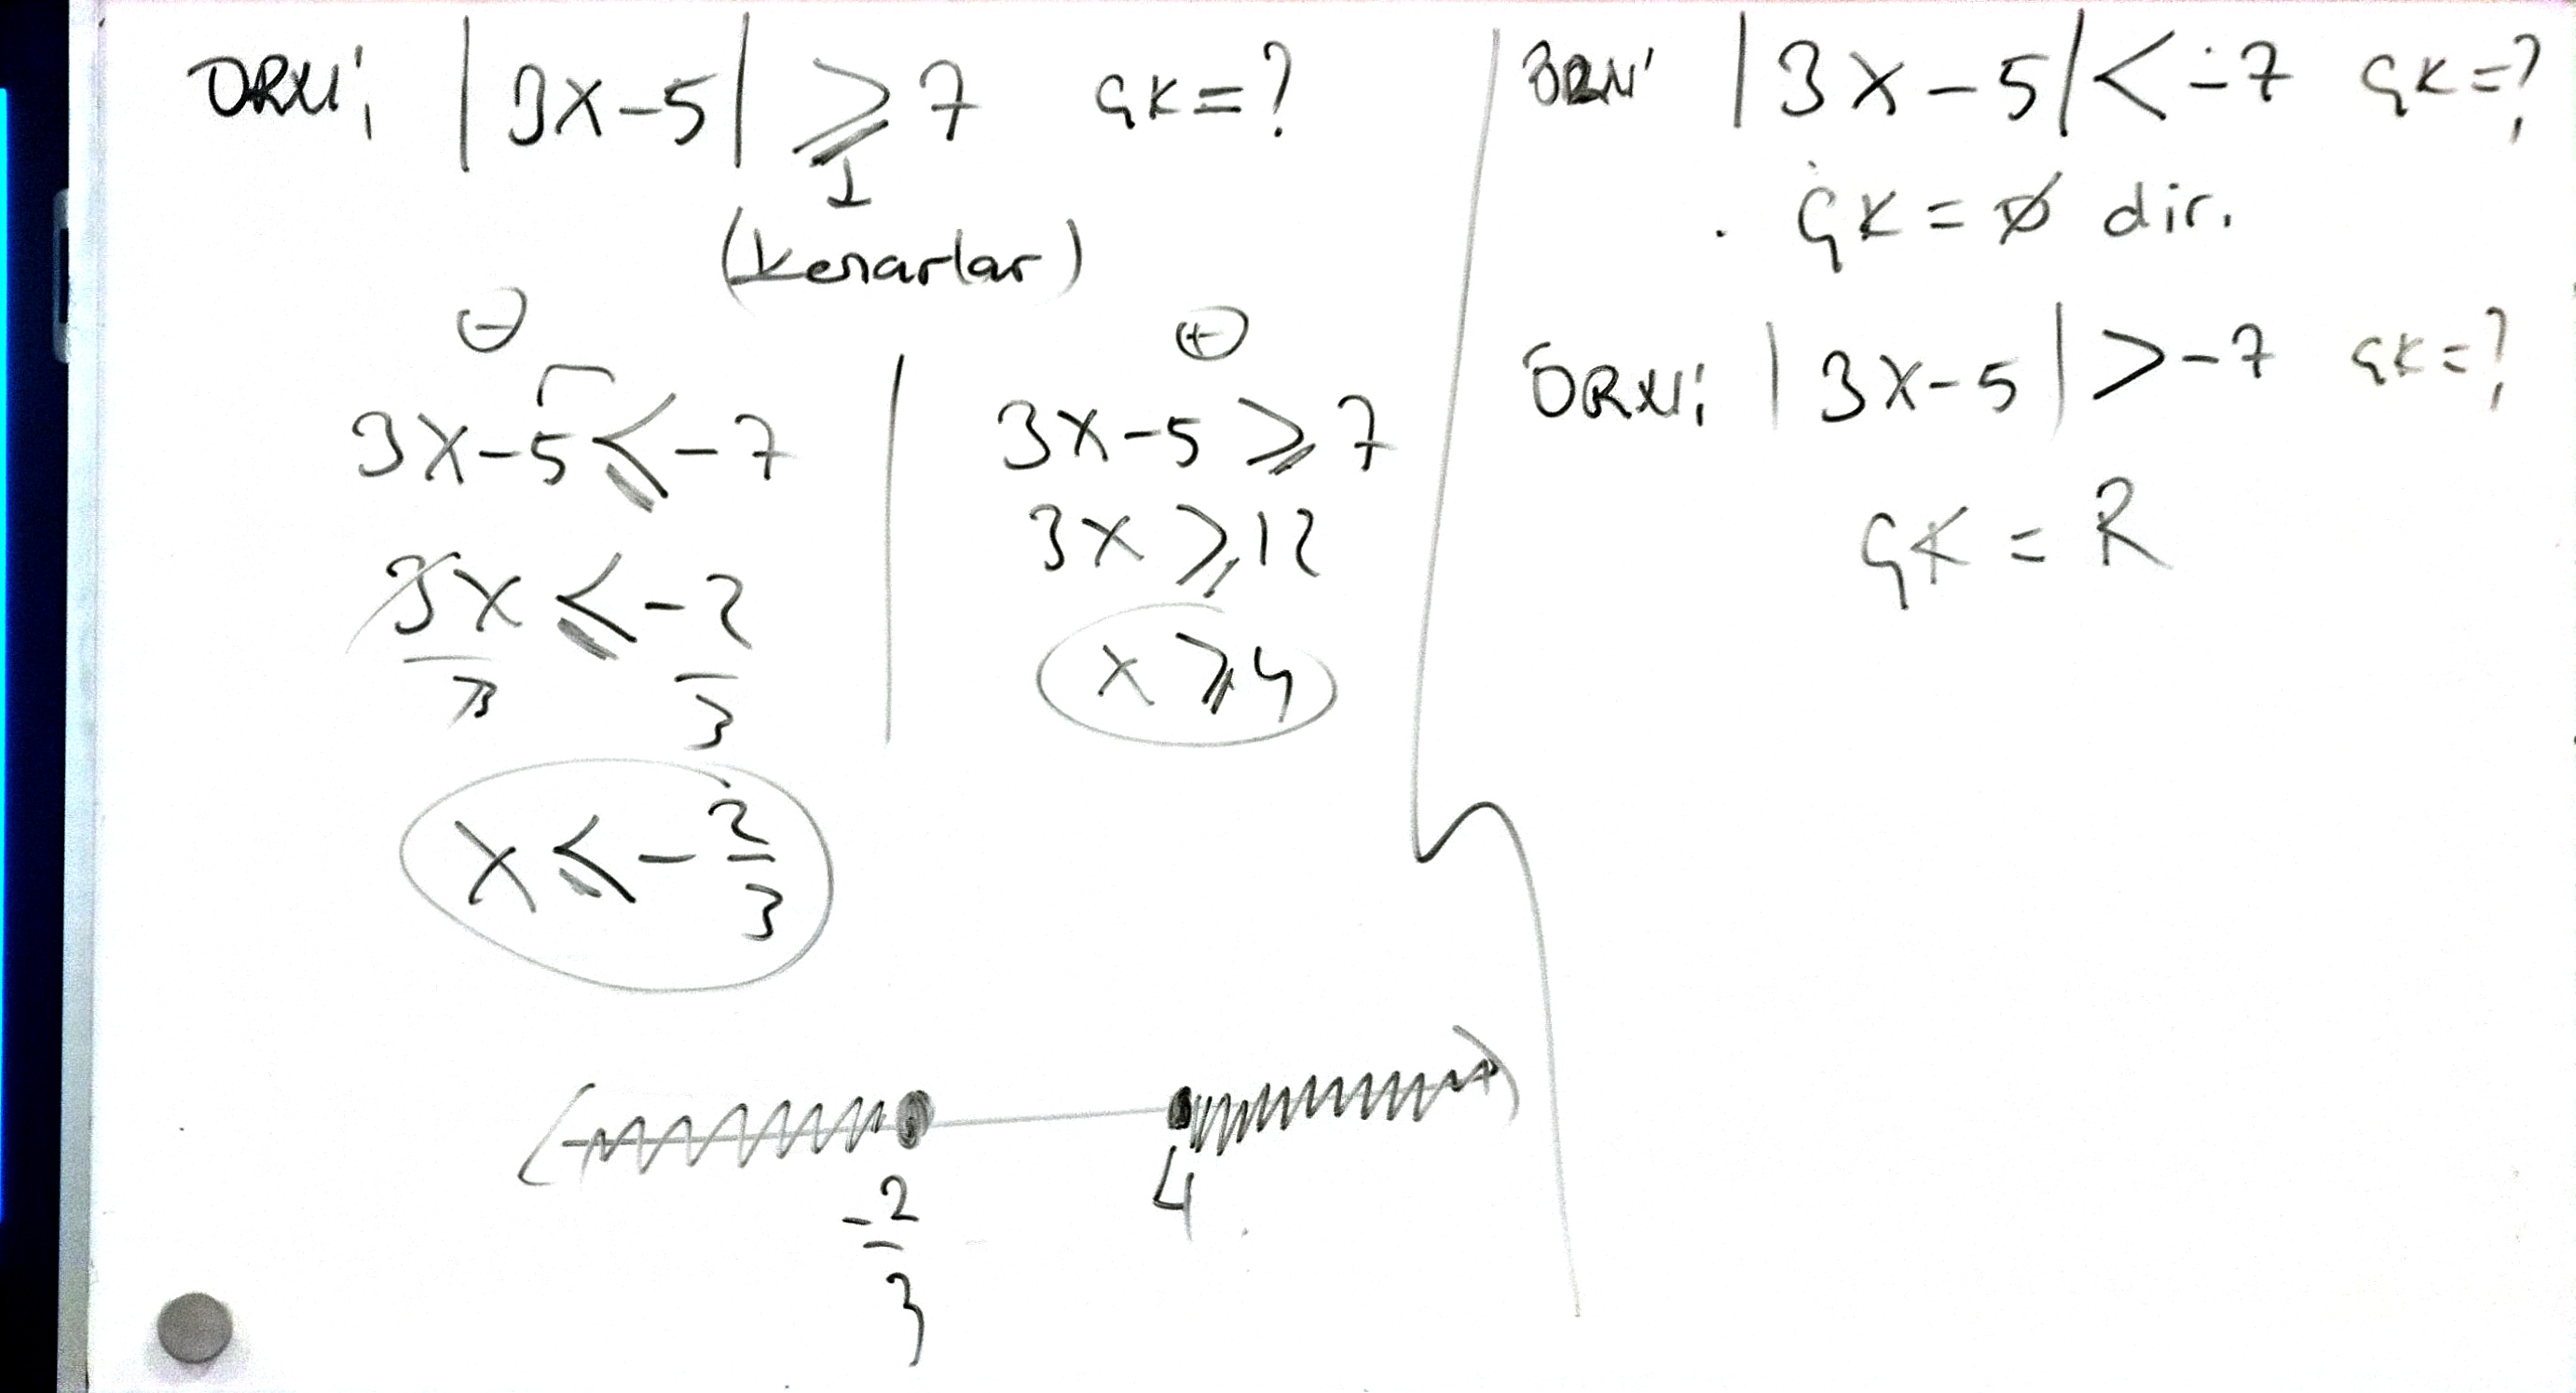 ÖRN: |3x-5| ≥ 7 ÇK=?
(Kenarlar)
⊖
3x-5 ≤ -7
3x/3 ≤ -2/3
x ≤ -2/3
⊕
3x-5 ≥ 7
3x ≥ 12
x ≥ 4
-2/3 4
ÖRN: |3x-5| < -7 ÇK=?
ÇK = ∅ dir.
ÖRN: |3x-5| > -7 ÇK=?
ÇK = R